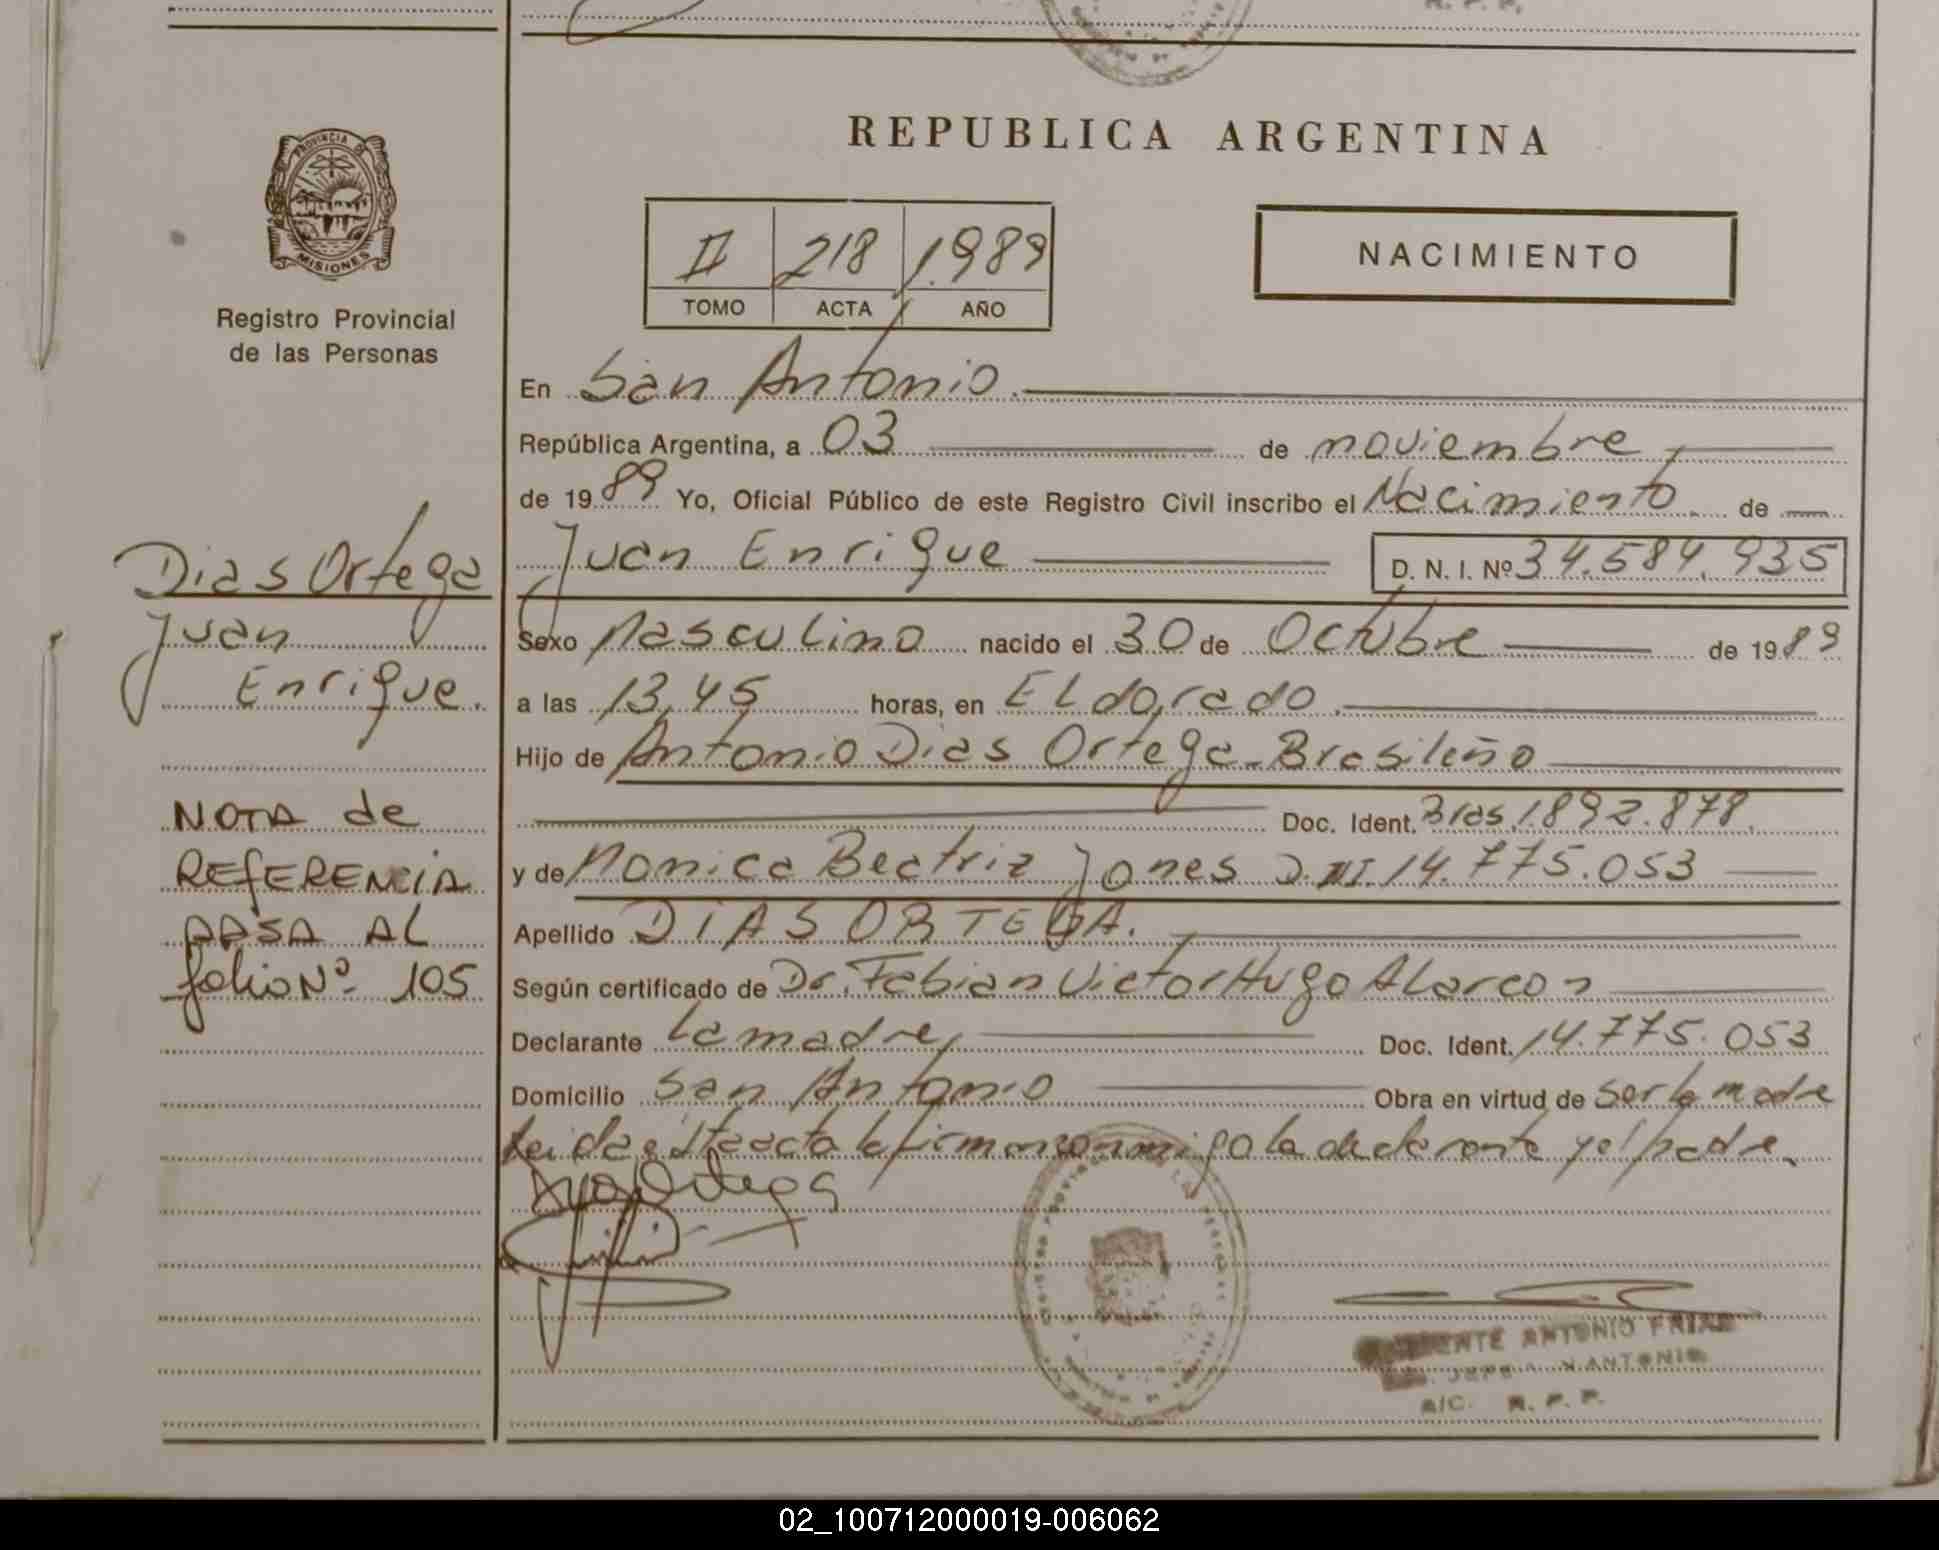 R. P. P.
PROVINCIA DE
MISIONES
Registro Provincial
de las Personas
REPUBLICA ARGENTINA
II 218 1.989
TOMO ACTA AÑO
NACIMIENTO
En San Antonio.
República Argentina, a 03 de noviembre
de 1989 Yo, Oficial Público de este Registro Civil inscribo el Nacimiento de
Juan Enrique D. N. I. Nº 34.584.935
Dias Ortega
Juan
Enrique.
Sexo Masculino nacido el 30 de Octubre de 1989
a las 13,45 horas, en Eldorado.
Hijo de Antonio Dias Ortega - Brasileño
Doc. Ident. Bras. 1.892.878.
y de Monica Beatriz Jones D.NI. 14.775.053
Apellido DIAS ORTEGA.
Según certificado de Dr. Fabian Victor Hugo Alarcon
Declarante La madre Doc. Ident. 14.775.053
Domicilio San Antonio Obra en virtud de ser la madre
Leida esta acta la firman conmigo la declarante y el padre.
NOTA de
REfERENCiA
PASA AL
folio Nº 105
Ortega
ANTONIO FRIAS
A/C. R. P. P.
02_100712000019-006062